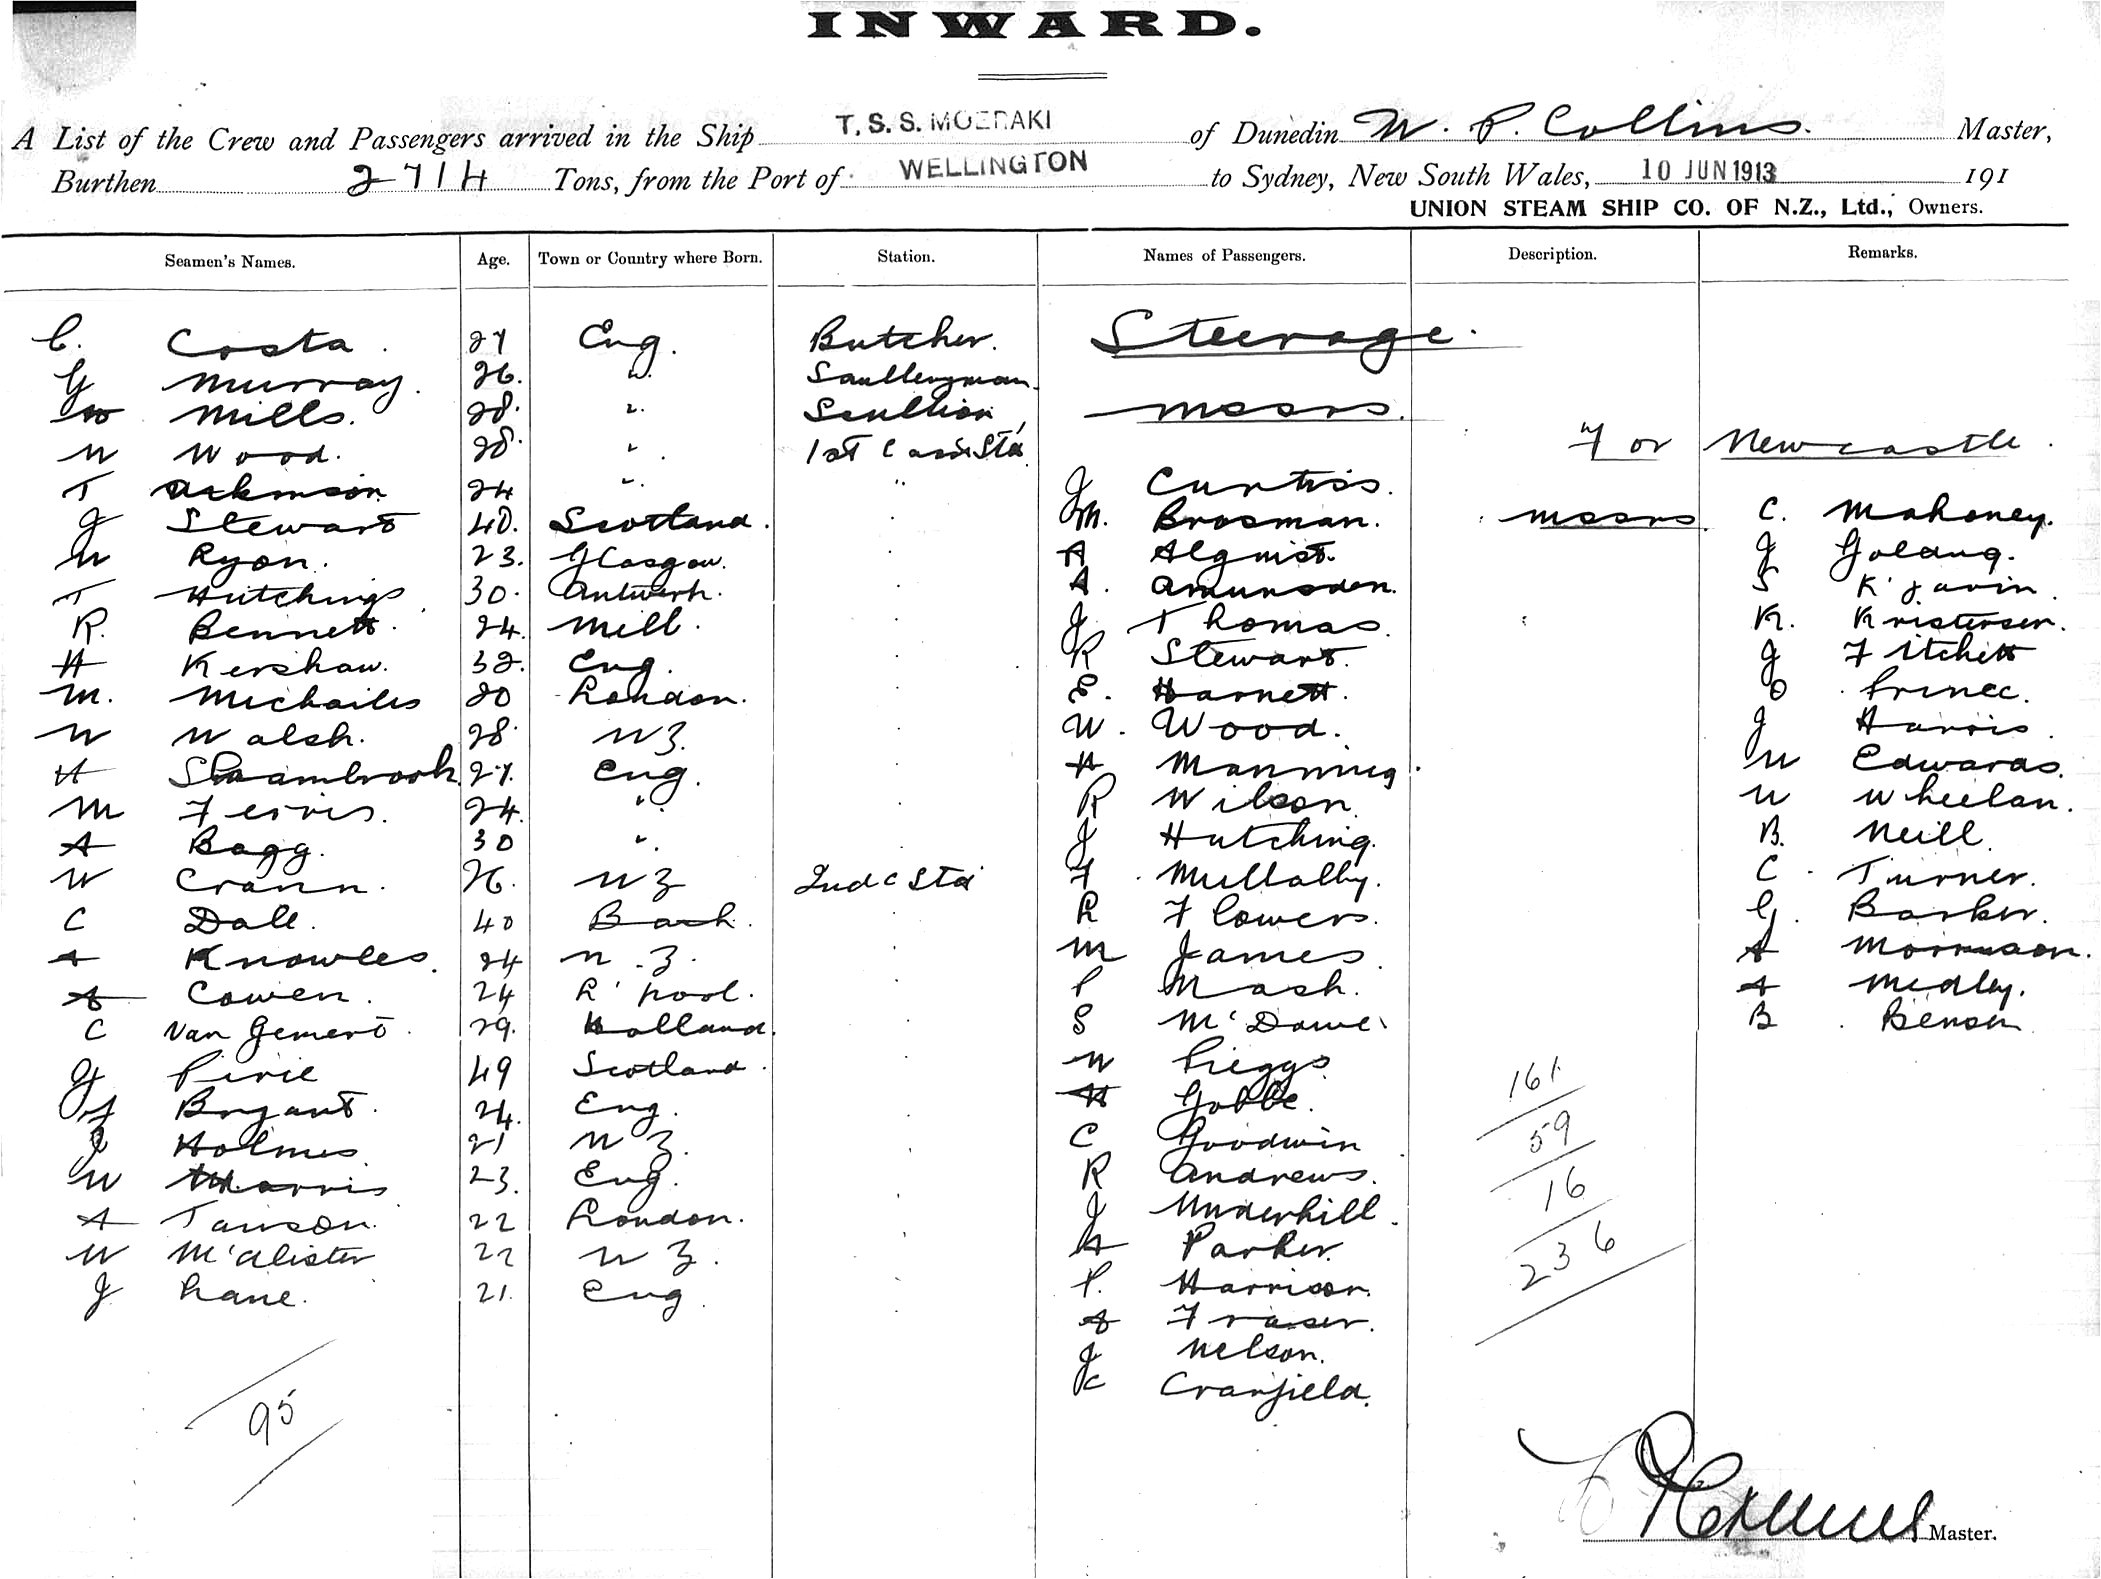 INWARD.
A List of the Crew and Passengers arrived in the Ship T.S.S. MOERAKI of Dunedin W. P. Collins. Master,
Burthen 2714 Tons, from the Port of WELLINGTON to Sydney, New South Wales, 10 JUN 1913 191
UNION STEAM SHIP CO. OF N.Z., Ltd., Owners.
Seamen's Names. Age. Town or Country where Born. Station. Names of Passengers. Description. Remarks.
C. Costa. 27 Eng. Butcher.
G Murray. 26. " Sculleryman
W Mills. 28. " Scullion
W Wood. 28. " 1st C Std
T Atkinson 24 " "
J Stewart 40. Scotland.
W Ryon. 23. Glasgow.
T Hutchings 30. Antwerp.
R. Bennett. 24. Mill.
H Kershaw. 32. Eng.
M. Michailis 20 London.
W Walsh. 28. NZ.
H Shambrook 27. Eng.
M 24. "
A Bagg. 30 "
W Crann. 26. NZ 2nd C Std
C Dall. 40
A Knowles. 24 N.Z.
A Cowen. 24 L'pool.
C Van Gemert. 29. Holland.
G Pirie 49 Scotland.
Bryant. 24. Eng.
J Holmes 21 NZ.
W Morris 23. Eng.
A Tawson. 22 London.
W McAlister 22 NZ.
J Lane. 21. Eng.
95
Steerage.
Messrs.
J Curtiss.
M. Brosman.
A Alquist.
A. Amunsden.
J Thomas.
R Stewart.
E. Harnett.
W. Wood.
H Manning.
R Wilson.
J Hutching.
F. Mullally.
L Flowers.
M James.
P Mash.
S
W Pieggs.
H Gobbe.
C Goodwin
R Andrews.
J Underhill.
A Parker.
P. Harrison.
A Fraser.
J Nelson.
C Cranfield.
For Newcastle.
Messrs. C. Mahoney.
J Golding.
S
K. Kristensen.
J Fitchett
O. Prince.
J Harris.
W Edwards.
W Wheelan.
B. Neill.
C. Turner.
G. Barker.
A Morrison.
A Medley.
B. Benson
161
59
16
236
Master.